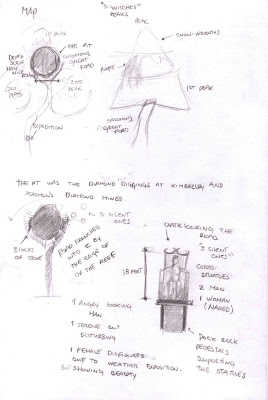 MAP
"3 WITCHES" PEAKS
PEAK
1st PEAK
THE PIT
SOLOMON'S GREAT ROAD
2ND PEAK
EXPEDITION
SNOW-WREATHS
1st PEAK
SOLOMONS GREAT ROAD
THE PIT WAS THE DIAMOND DIGGINGS AT KIMBERLEY AND
SOLOMON'S DIAMOND MINES.
3 SILENT
ONES
BLOCKS
OF STONE
ROAD BRANCHED
INTO 2 BY
THE EDGE OF
OF THE ABYSS
OVERLOOKING THE
ROAD
"3 SILENT
ONES"
18 FEET
COLOSSI
STATUES
2 MAN
1 WOMAN
(NAKED)
1 ANGRY LOOKING
MAN
1 SERENE BUT
DISTURBING
1 FEMALE DISFIGURED
DUE TO WEATHER EXPOSITION.
BUT SHOWING BEAUTY
DARK ROCK
PEDESTALS
SUPPORTING
THE STATUES